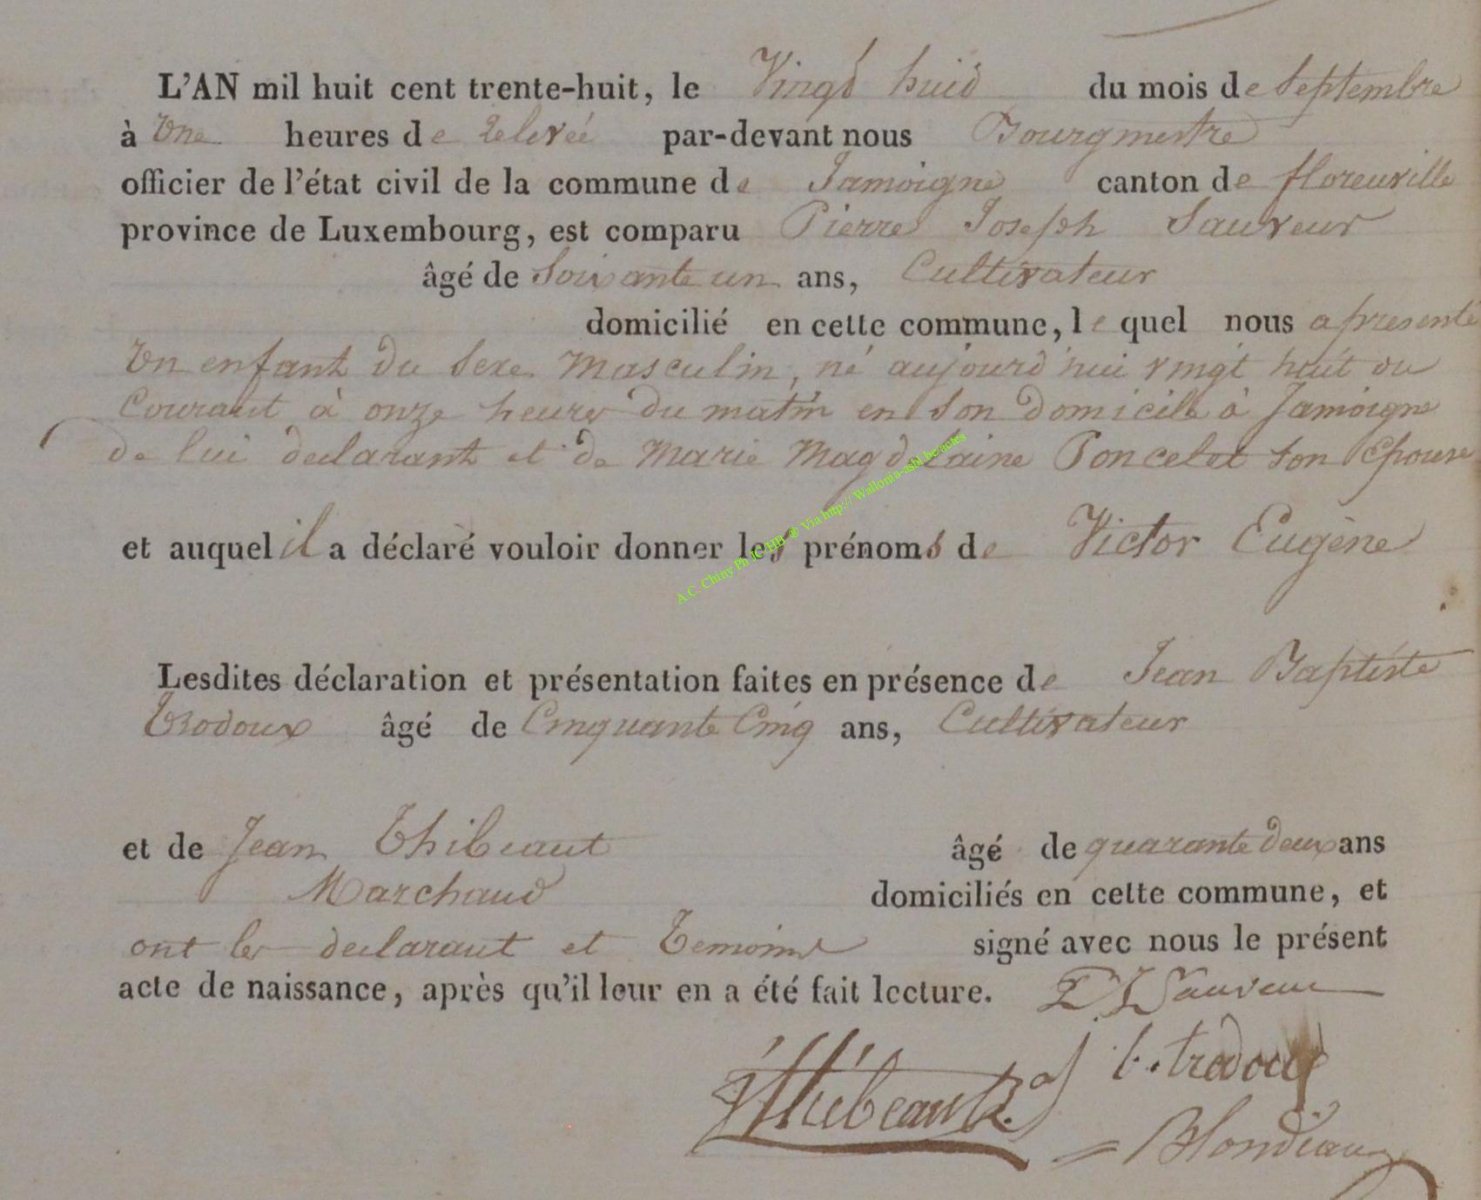 L'AN mil huit cent trente-huit, le Vingt huit du mois de Septembre
à Une heures de relevée par-devant nous Bourgmestre
officier de l'état civil de la commune de Jamoigne canton de florenville
province de Luxembourg, est comparu Pierre Joseph Sauveur
âgé de Soixante un ans, Cultivateur
domicilié en cette commune, le quel nous a presenté
Un enfant du Sexe Masculin, né aujourd'hui vingt huit du
Courant à onze heures du matin en Son Domicile à Jamoigne
de lui declarant et de Marie Magdelaine Poncelet son Epouse
et auquel il a déclaré vouloir donner les prénoms de Victor Eugène
A.C. Chiny Ph JC HB @ Via http:// Wallonia-asbl.be/actes
Lesdites déclaration et présentation faites en présence de Jean Baptiste
Trodoux âgé de Cinquante Cinq ans, Cultivateur
et de Jean Thibeaut âgé de quarante deux ans
Marchand domiciliés en cette commune, et
ont les declarant et Temoins signé avec nous le présent
acte de naissance, après qu'il leur en a été fait lecture. P J Sauveur
Thiebeaut
Blondiau